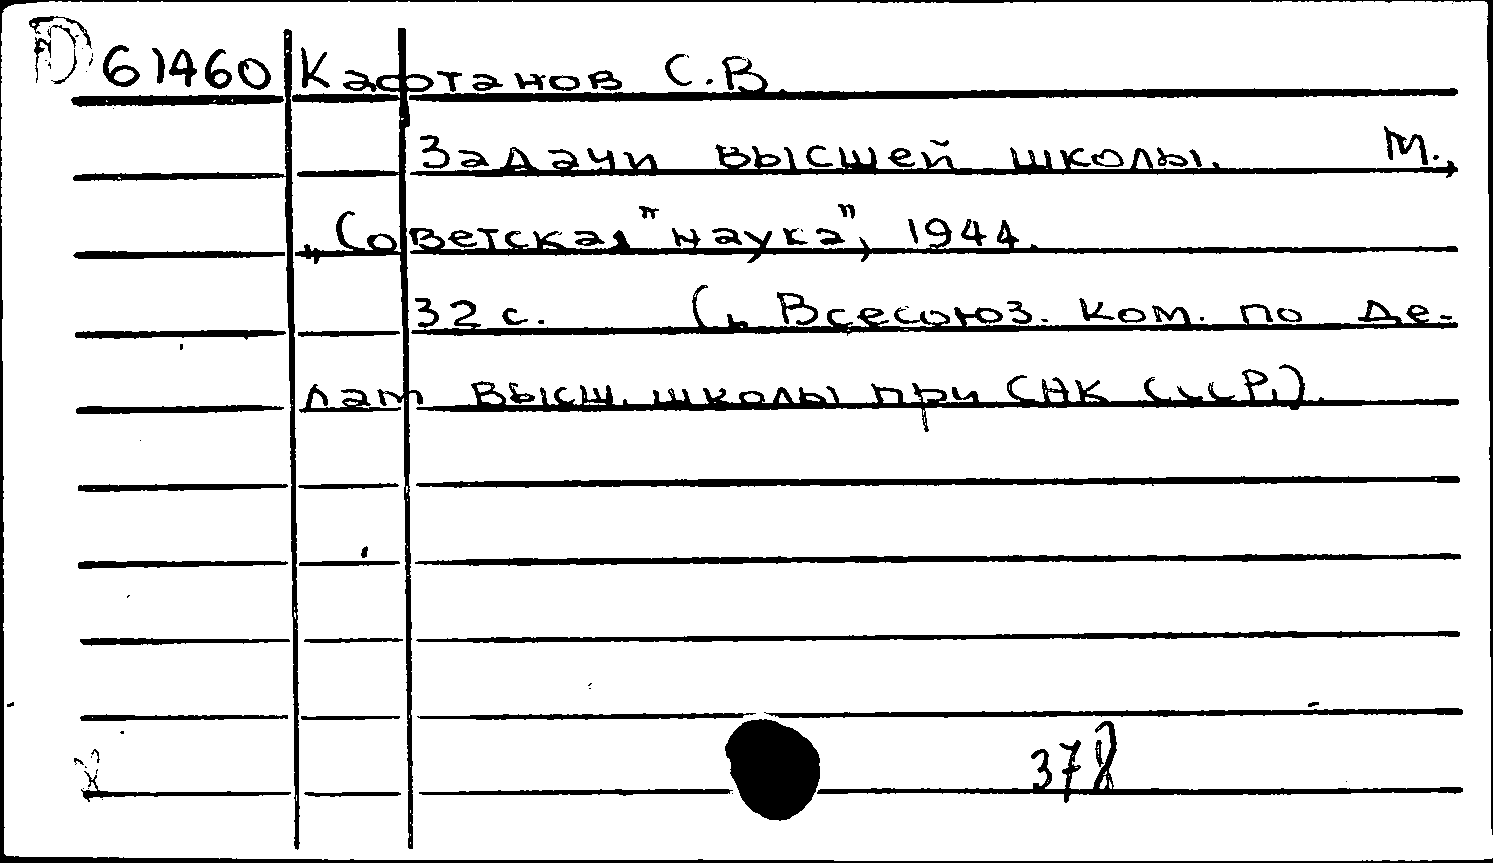 D 61460 Кафтанов С.В.
Задачи высшей школы. М.,
„Советская "наука", 1944.
32 с. (, Всесоюз. ком. по де-
лам высш. школы при СНК СССР,).
378